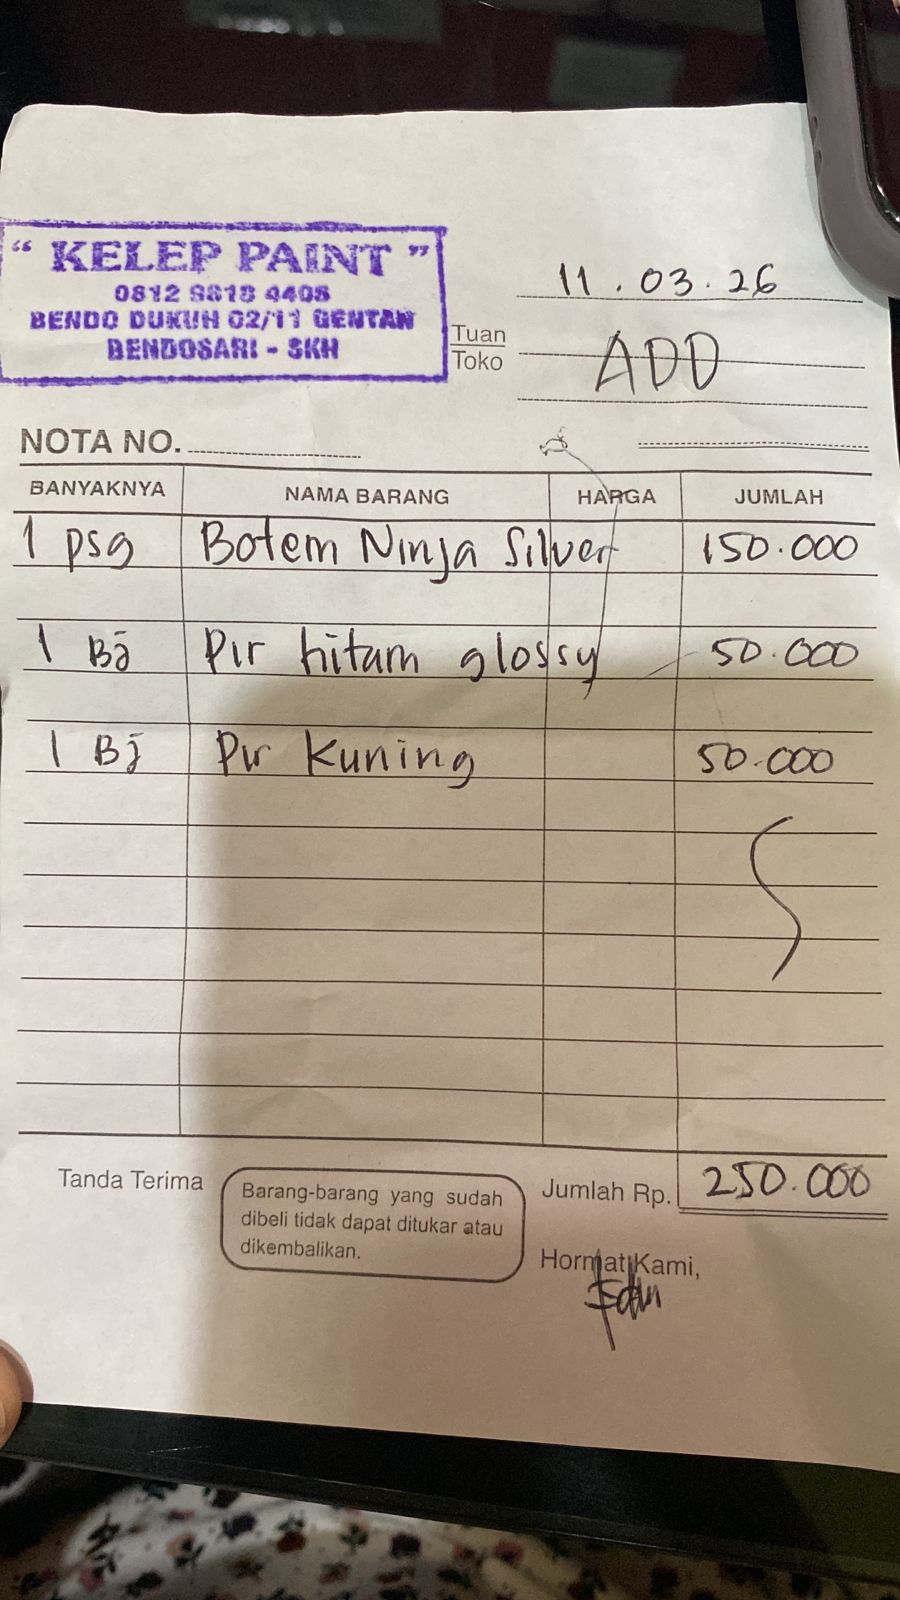 " KELEP PAINT "
0812 9818 4408
BENDO DUKUH 02/11 GENTAN
BENDOSARI - SKH
11.03.26
Tuan
Toko
ADD
NOTA NO.
BANYAKNYA NAMA BARANG HARGA JUMLAH
1 psg Botem Ninja Silver 150.000
1 Bj Pir hitam glossy 50.000
1 Bj Pir Kuning 50.000
Tanda Terima
Barang-barang yang sudah
dibeli tidak dapat ditukar atau
dikembalikan.
Jumlah Rp. 250.000
Hormat Kami,